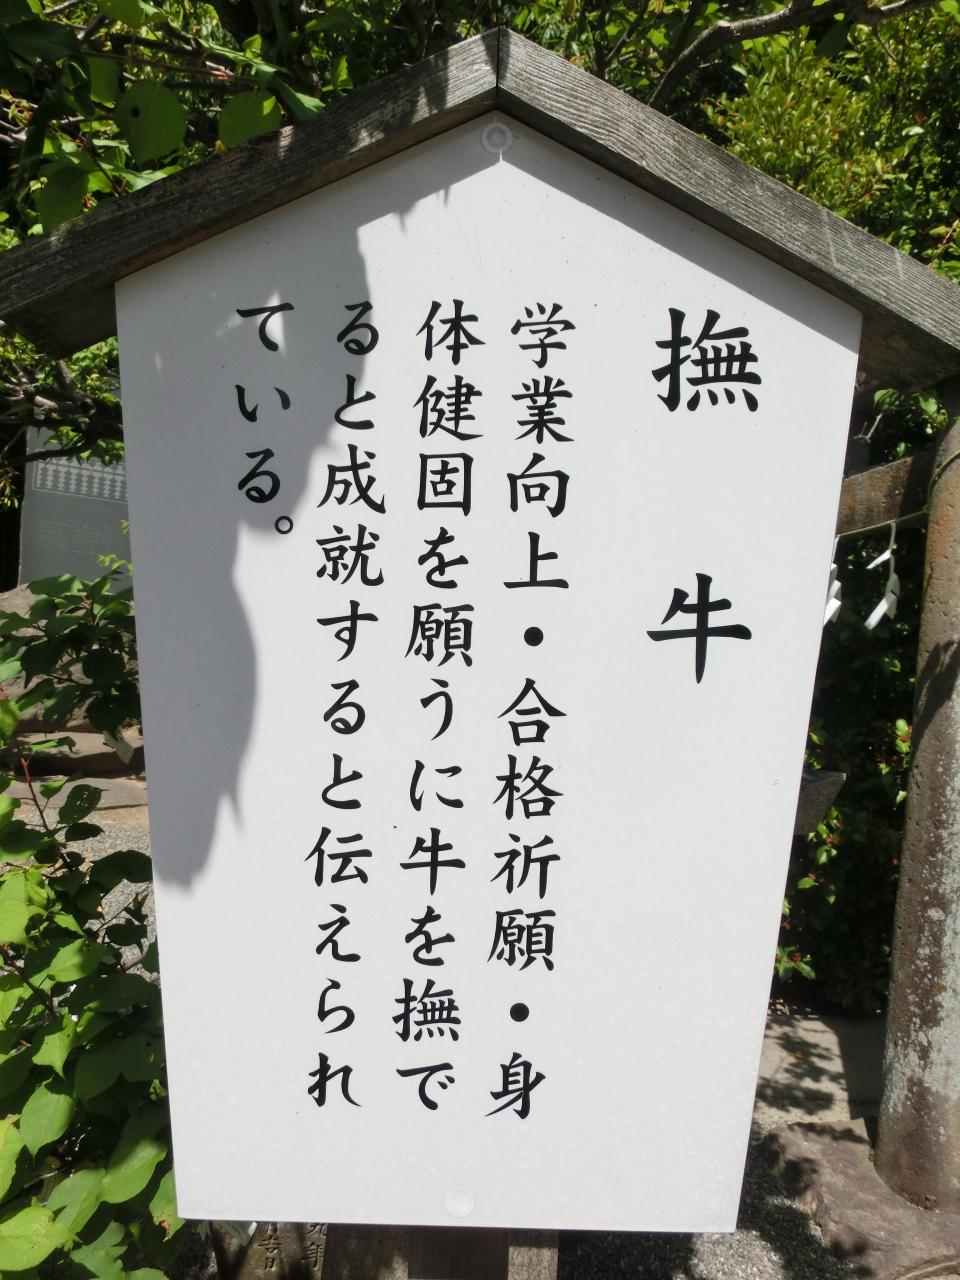 撫牛
学業向上・合格祈願・身
体健固を願うに牛を撫で
ると成就すると伝えられ
ている。